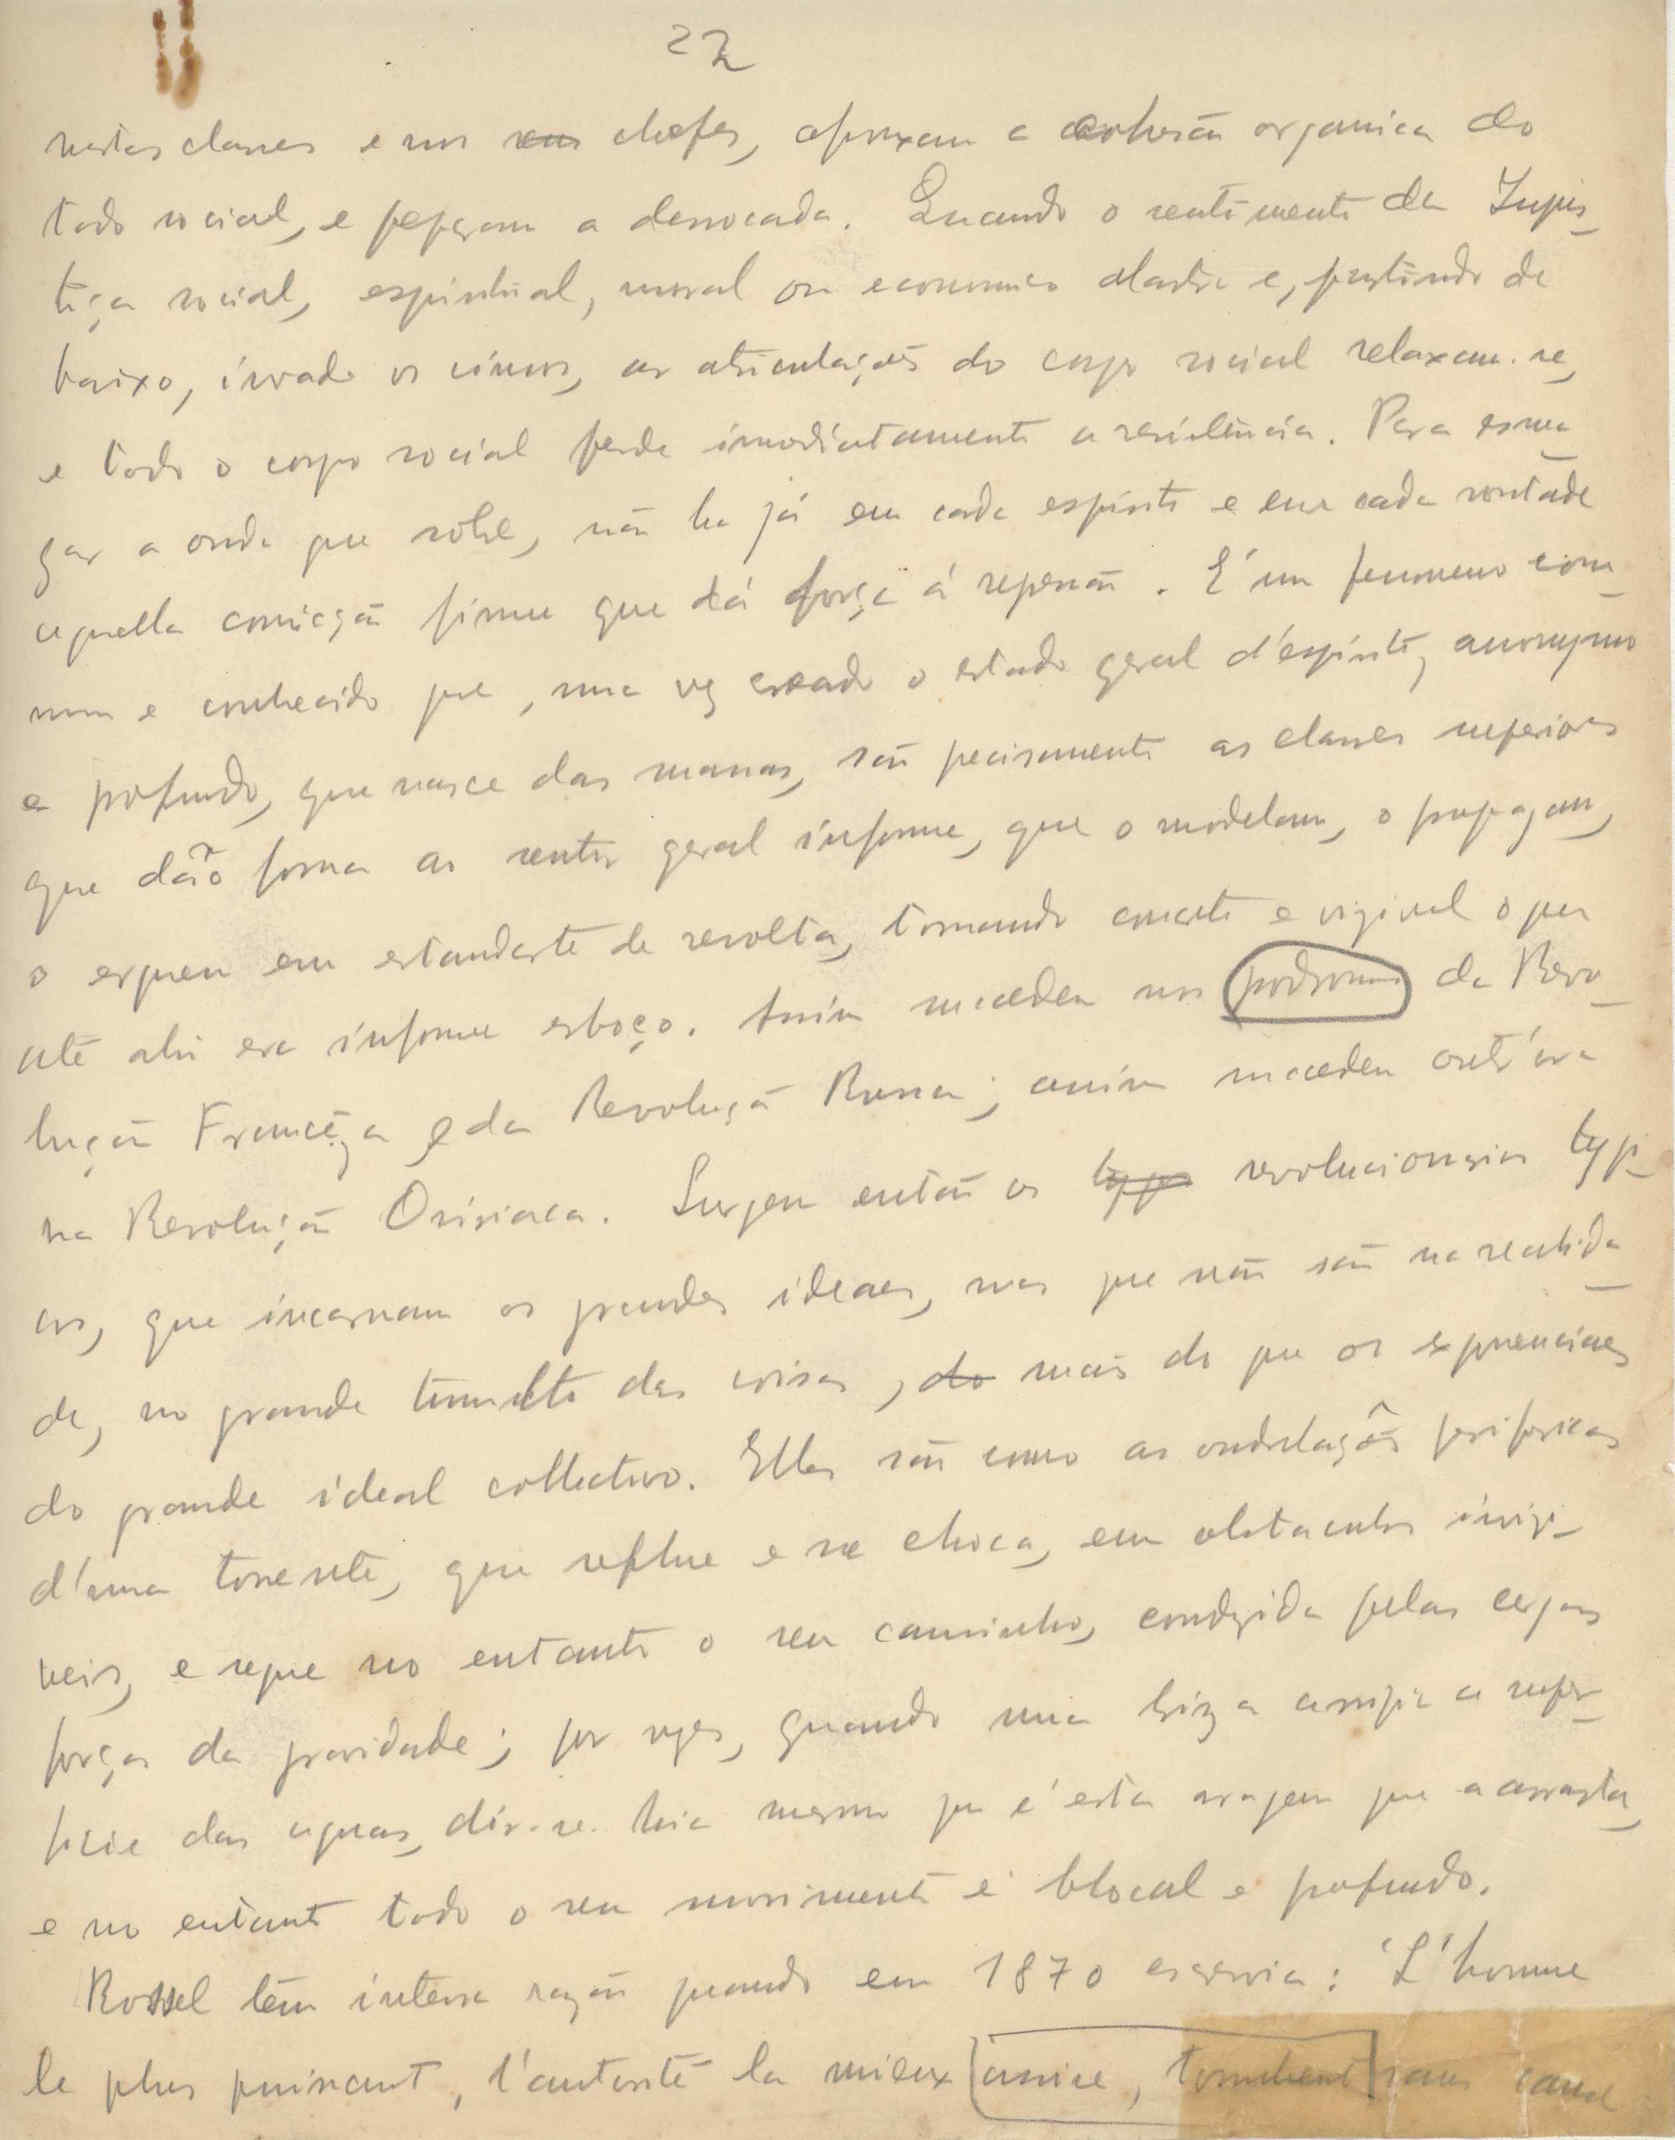 22
nestas classes e nos seus chefes, afrouxam a cohesão organica do
todo social, e preparam a derrocada. Quando o sentimento da Injus-
tiça social, espiritual, moral ou economico alastra e, partindo de
baixo, invade os cimos, as articulações do corpo social relaxam-se,
e todo o corpo social perde immediatamente a resistencia. Para esma-
gar a onda que sóbe, não ha já em cada espirito e em cada vontade
aquella convicção firme que dá força á repressão. É um fenomeno com-
mum e conhecido que, uma vez creado o estado geral d'espirito, anonymo
e profundo, que nasce das massas, são precisamente as classes superiores
que dão forma ao sentir geral informe, que o modelam, o propagam,
o erguem em estandarte de revolta, tornando concreto e vizivel o que
até ahi era informe esboço. Assim succedeu nos prodromos da Revo-
lução Francêza e da Revolução Russa; assim succedeu outr'ora
na Revolução Osiriaca. Surgem então os typos revolucionarios typi-
cos, que incarnam os grandes ideaes, mas que não são na realida-
de, no grande tumulto das coisas, do mais do que os exponenciaes
do grande ideal collectivo. Elles são como as ondulações perifericas
d'uma torrente, que reflue e se choca, em obstaculos invizi-
veis, e segue no entanto o seu caminho, conduzida pelas cegas
forças da gravidade; por vezes, quando uma briza arripia a super-
ficie das aguas, dir-se-hia mesmo que é esta aragem que a arrasta,
e no entanto todo o seu movimento é blocal e profundo.
Rossel têm inteira razão quando em 1870 escrevia: "L'homme
le plus puissant, l'autorité la mieux assise, tombent sans cause